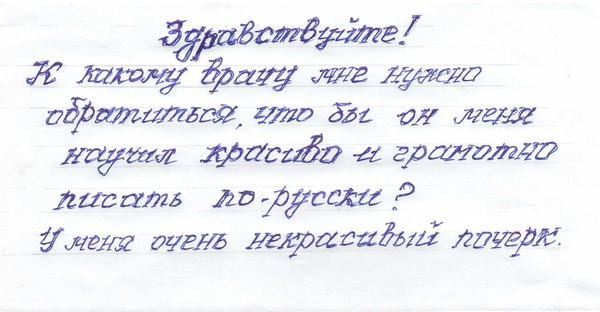 Здравствуйте!
К какому врачу мне нужно
обратиться, что бы он меня
научил красиво и грамотно
писать по-русски?
У меня очень некрасивый почерк.